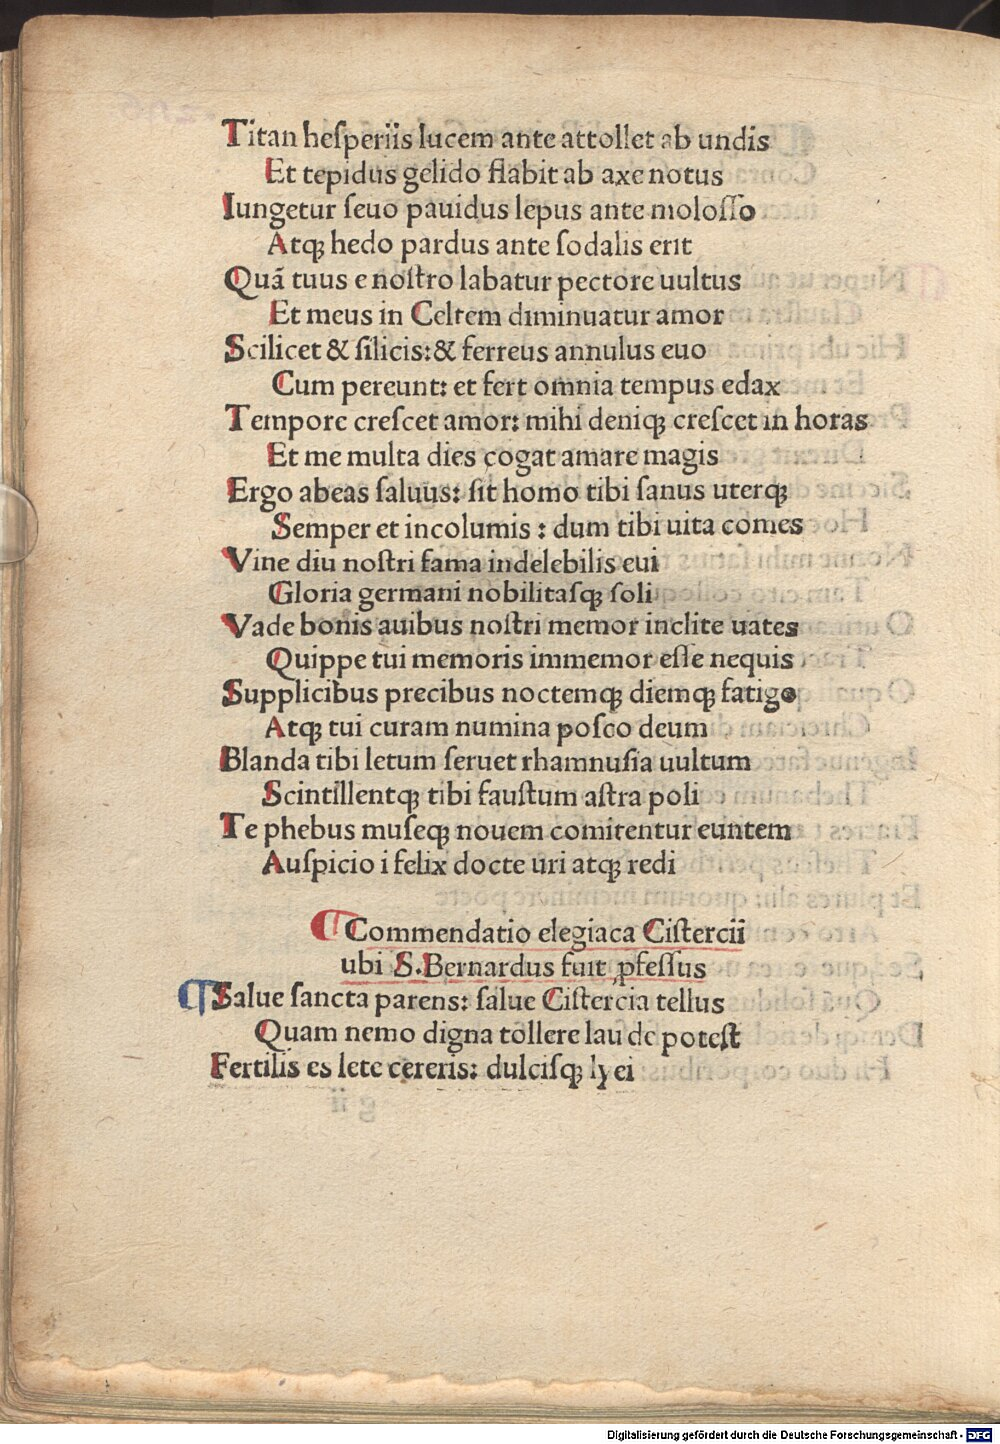 Titan heſperiis lucem ante attollet ab undis
Et tepidus gelido flabit ab axe notus
Iungetur ſeuo pauidus lepus ante moloſſo
Atqꝫ hedo pardus ante ſodalis erit
Quã tuus e noſtro labatur pectore uultus
Et meus in Celtem diminuatur amor
Scilicet & ſilicis: & ferreus annulus euo
Cum pereunt: et fert omnia tempus edax
Tempore creſcet amor: mihi deniqꝫ creſcet in horas
Et me multa dies cogat amare magis
Ergo abeas ſaluus: ſit homo tibi ſanus uterqꝫ
Semper et incolumis : dum tibi uita comes
Viue diu noſtri fama indelebilis eui
Gloria germani nobilitaſqꝫ ſoli
Vade bonis auibus noſtri memor inclite uates
Quippe tui memoris immemor eſſe nequis
Supplicibus precibus noctemqꝫ diemqꝫ fatigo
Atqꝫ tui curam numina poſco deum
Blanda tibi letum ſeruet rhamnuſia uultum
Scintillentqꝫ tibi fauſtum aſtra poli
Te phebus muſeqꝫ nouem comitentur euntem
Auſpicio i felix docte uiri atqꝫ redi
¶ Commendatio elegiaca Ciſtercii
ubi S. Bernardus fuit ꝓfeſſus
¶ Salue ſancta parens: ſalue Ciſtercia tellus
Quam nemo digna tollere laude poteſt
Fertilis es lete cereris: dulciſqꝫ lyei
Digitalisierung gefördert durch die Deutsche Forschungsgemeinschaft - DFG